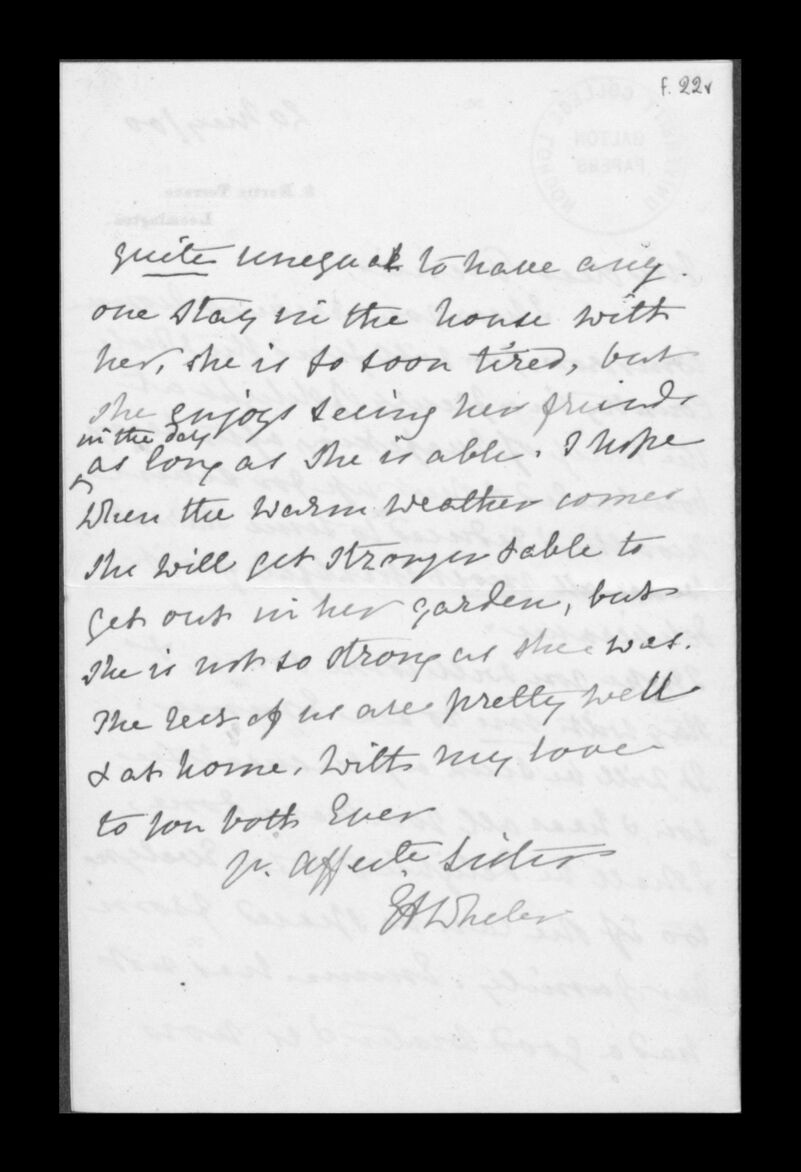 f. 22v
quite unequal to have any
one stay in the house with
her, she is so soon tired, but
she enjoys seeing her friends
in the day
as long as she is able. I hope
when the warm weather comes
she will get stronger & able to
get out in her garden, but
she is not so strong as she was.
The rest of us are pretty well
& at home. With my love
to you both Ever
yr. affecte. Sister
EAWheler